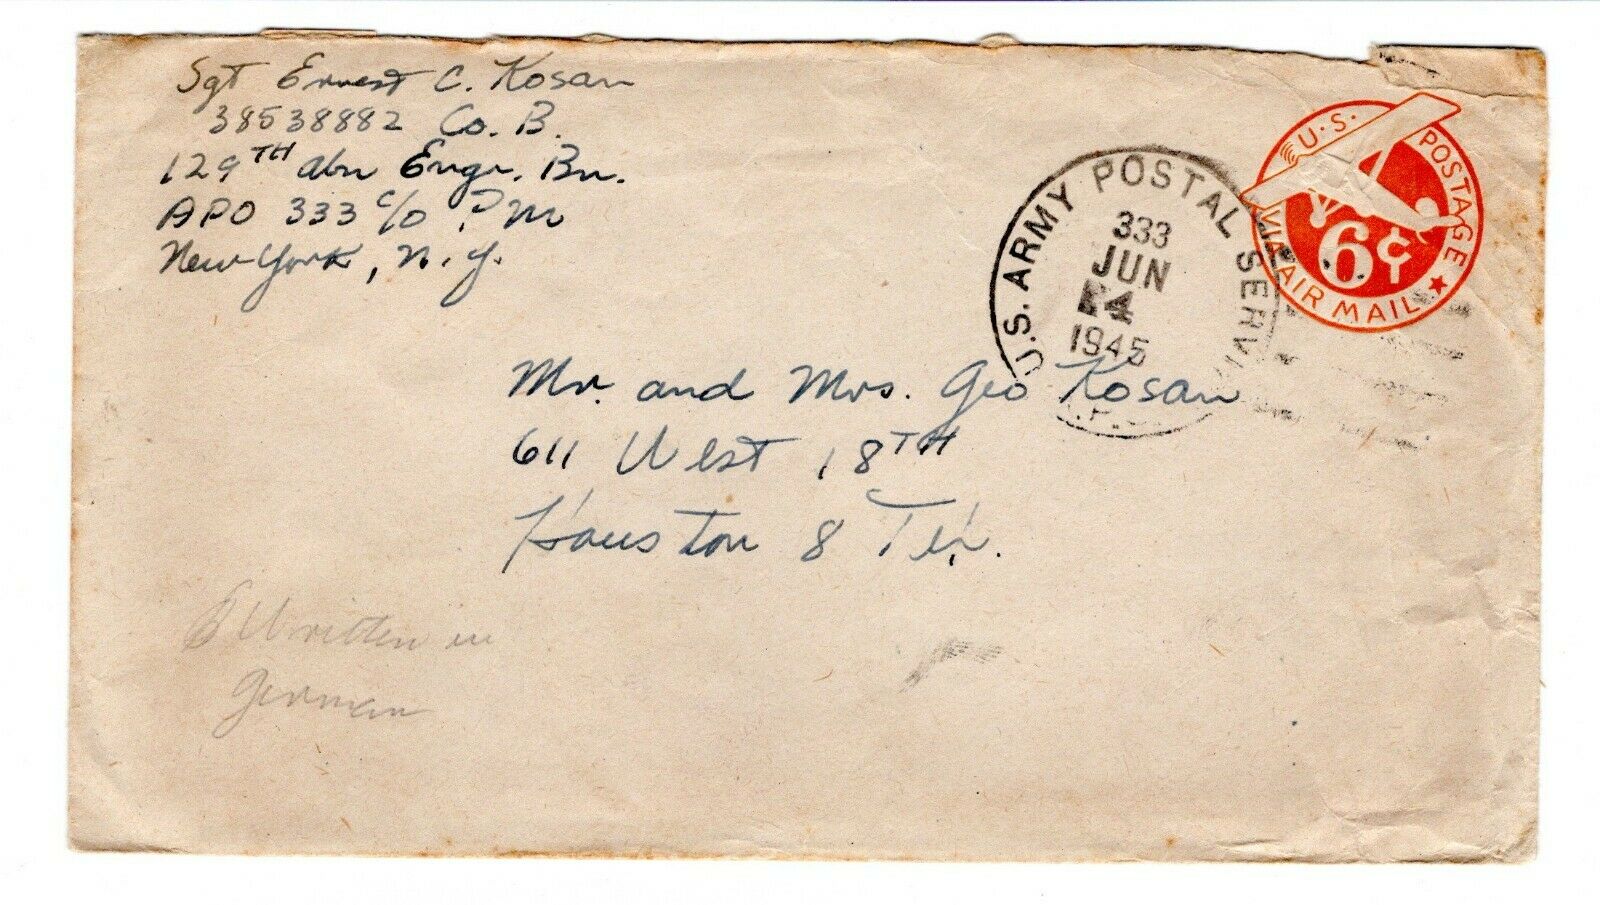 Sgt Ernest C. Kosan
38538882 Co. B.
129TH abn Engr. Bn.
APO 333 c/o P M
New York, N.Y.
U.S. ARMY POSTAL SERVICE
333
JUN
14
1945
A.P.O.
U.S. POSTAGE
6¢
VIA AIR MAIL
Mr. and Mrs. Geo Kosan
611 West 18TH
Houston 8 Tex.
Written in
German